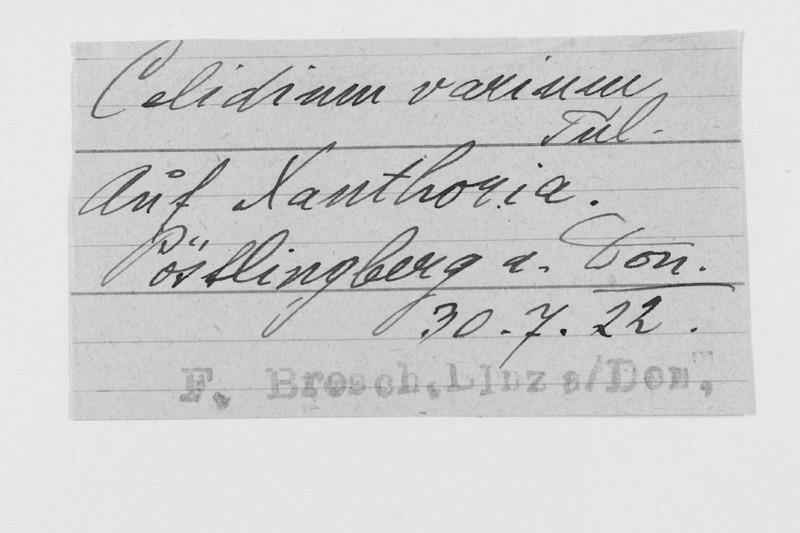 Celidium varium
Tul.
Auf Xanthoria.
Pöstlingberg a. Don.
30.7.22.
F. Brosch, Linz a/Don,